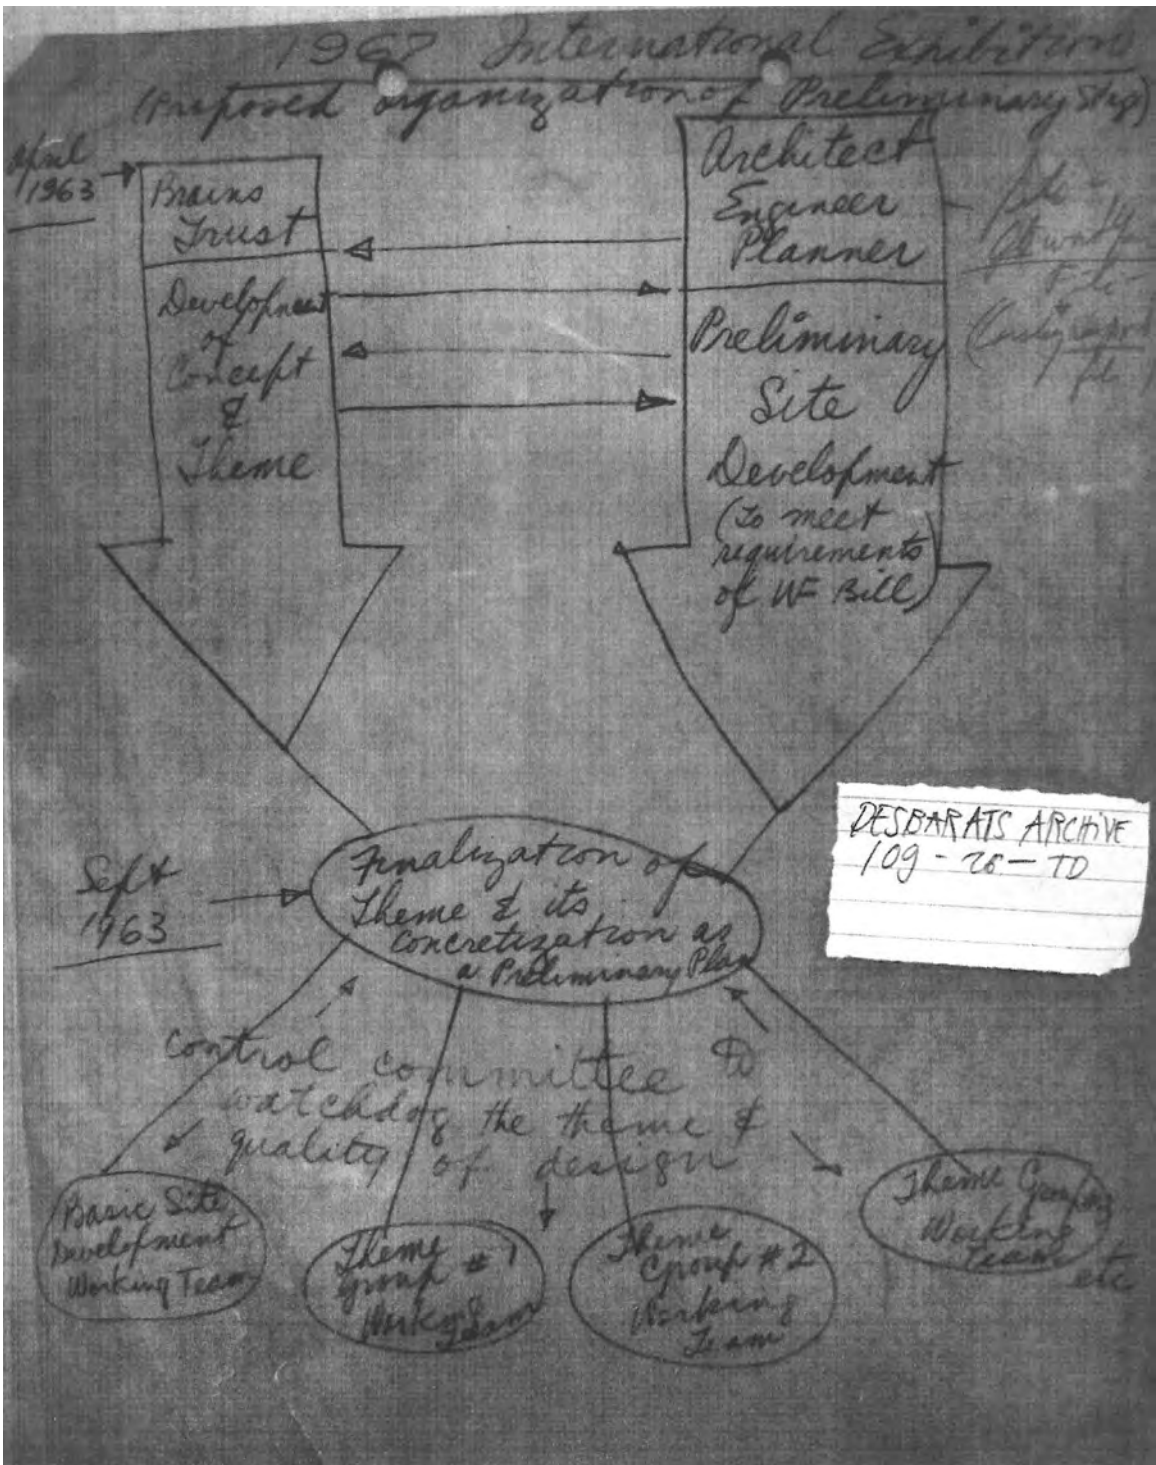 1967 International Exhibition
(Proposed organization of Preliminary Stage)
April
1963
Brains
Trust
Development
of
Concept
&
Theme
Architect
Engineer
Planner
Preliminary
Site
Development
(to meet
requirements
of WF Bill)
DESBARATS ARCHIVE
109 - 26 - TD
Sept
1963
Finalization of
Theme & its
concretization as
a Preliminary Plan
control committee to
watchdog the theme &
quality of design
Basic Site
Development
Working Team
Theme
group # 1
Working
Team
Theme
Group # 2
Working
Team
Theme Grouping
Working
Team
etc